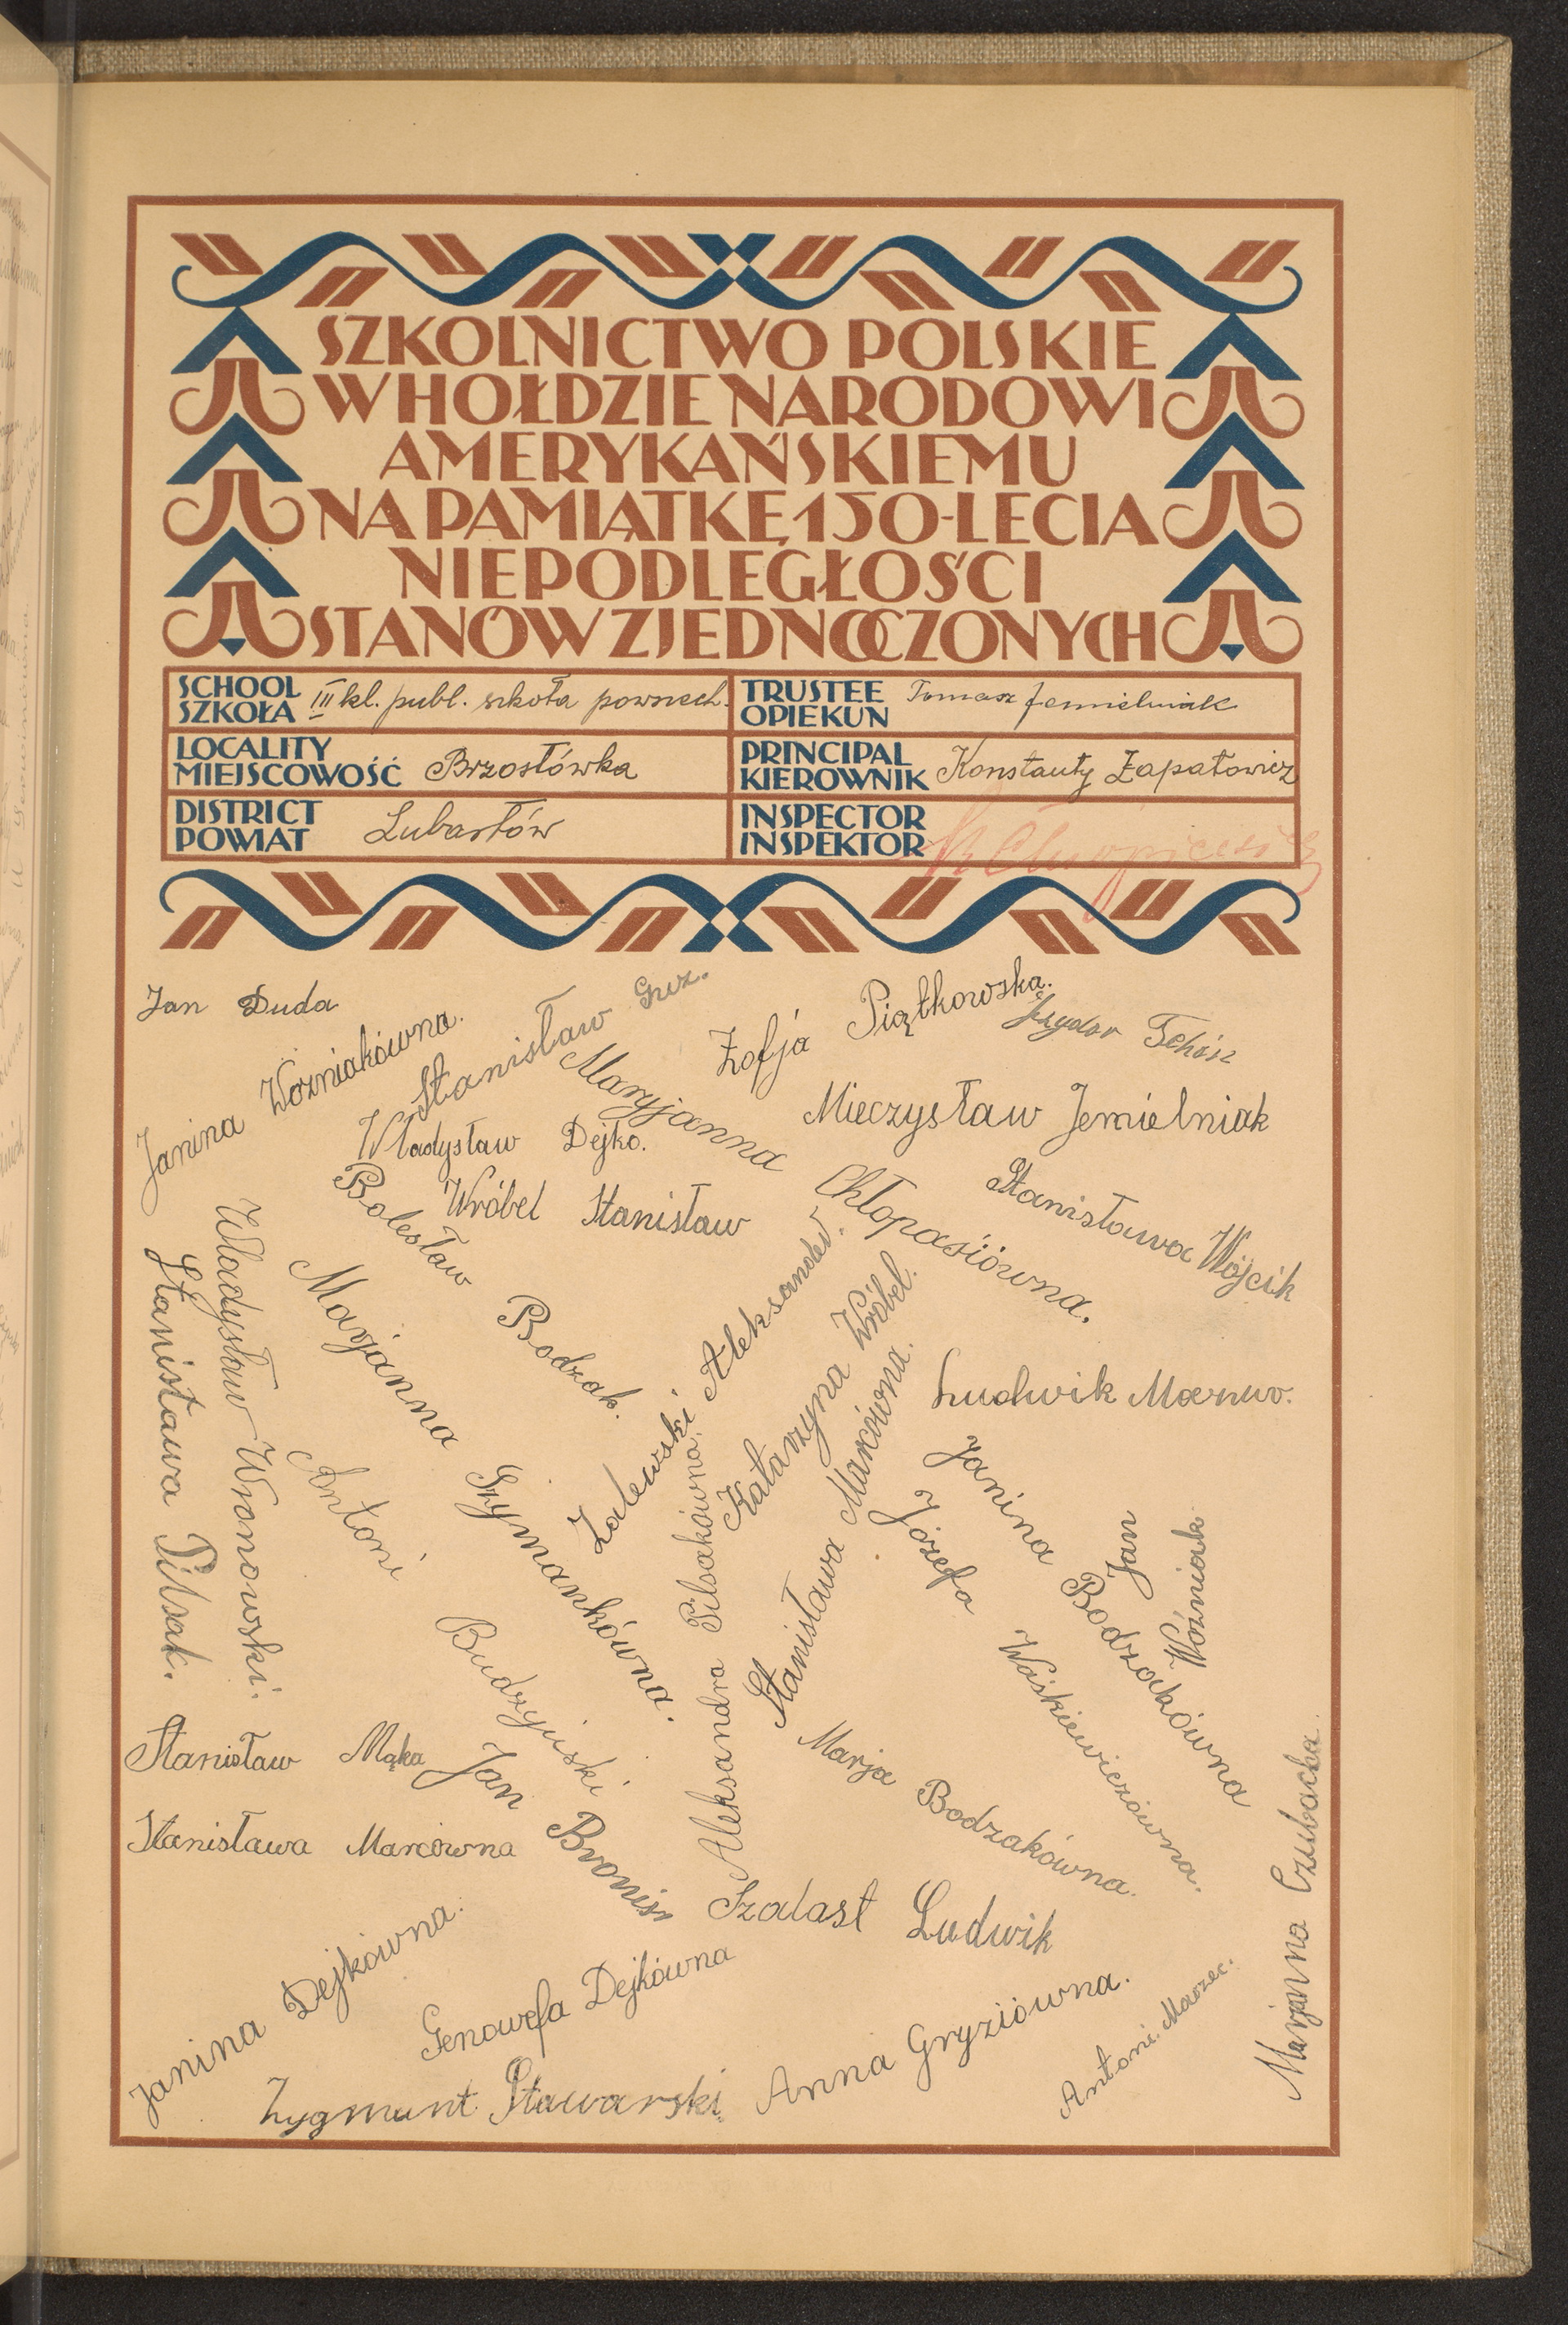 SZKOLNICTWO POLSKIE
W HOŁDZIE NARODOWI
AMERYKAŃSKIEMU
NA PAMIĄTKĘ 150-LECIA
NIEPODLEGŁOŚCI
STANÓW ZJEDNOCZONYCH
SCHOOL
SZKOŁA
III kl. publ. szkoła powszech.
TRUSTEE
OPIEKUN
Tomasz Jemielniak
LOCALITY
MIEJSCOWOŚĆ
Brzostówka
PRINCIPAL
KIEROWNIK
Konstanty Zapałowicz
DISTRICT
POWIAT
Lubartów
INSPECTOR
INSPEKTOR
Jan Duda
Janina Woźniakówna.
Stanisław
Zofja Piątkowska.
Maryjanna Chłopasiówna.
Mieczysław Jemielniak
Władysław Dejko.
Wróbel Stanisław
Stanisława Wójcik
Bolesław Bodzak.
Władysław Wronowski.
Stanisława Pilsak.
Marjanna Grymankówna.
Zalewski Aleksander.
Katarzyna Wróbel.
Stanisława Marcówna.
Ludwik
Antoni Budzyński
Aleksandra Pilsakówna.
Józefa Waśkiewiczówna.
Janina Bodzakówna
Jan
Woźniak
Stanisław Mąka
Jan
Marja Bodzakówna.
Stanisława Marcówna
Marjanna Czubacka.
Szalast Ludwik
Janina Dejkówna.
Genowefa Dejkówna
Anna Gryziówna.
Antoni Marzec.
Zygmunt Stawarski